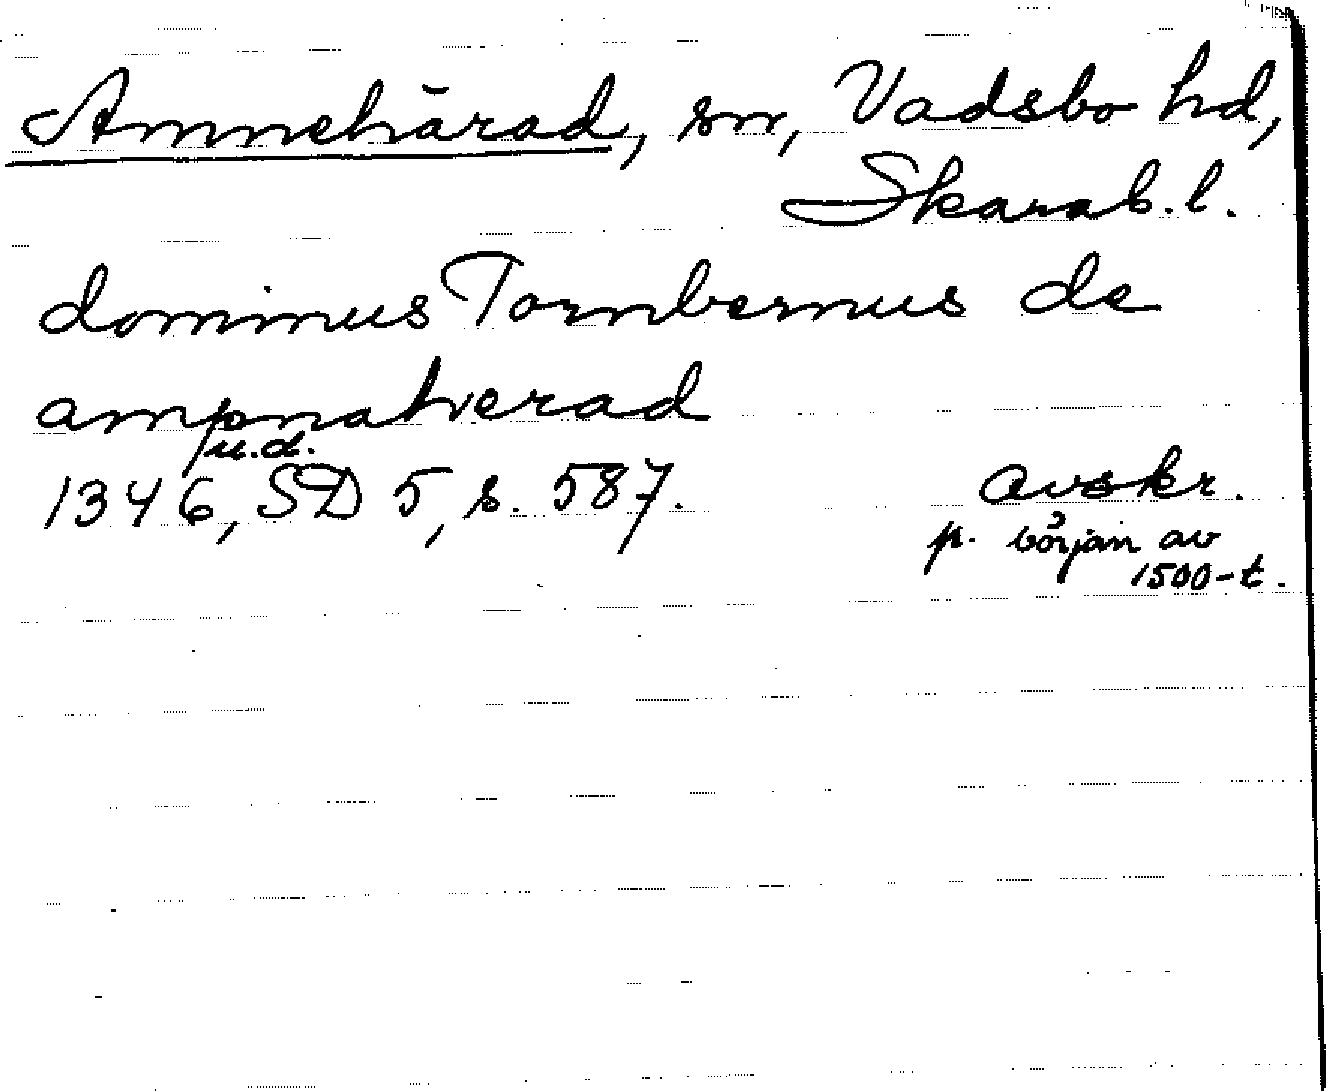 Amnehärad, sn, Vadsbo hd,
Skarab.l.
dominus Tornbernus de
ampnahverad
u.d.
1346, SD 5, s. 587.
avskr.
p. början av
1500-t.